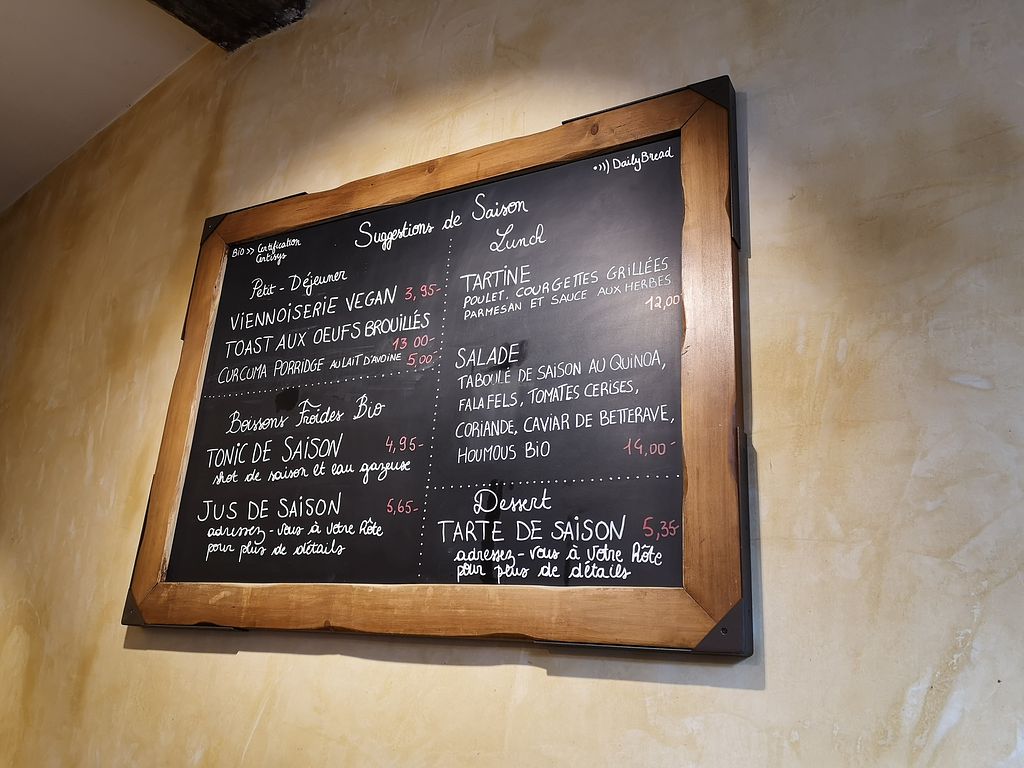 •))) DailyBread
Suggestions de Saison
Bio >> Certification
Certisys
Petit - Déjeuner
VIENNOISERIE VEGAN 3,95-
TOAST AUX OEUFS BROUILLÉS
13 00-
CURCUMA PORRIDGE AU LAIT D'AVOINE 5,00-
Boissons Froides Bio
TONIC DE SAISON 4,95-
shot de saison et eau gazeuse
JUS DE SAISON 5,65-
adressez-vous à votre hôte
pour plus de détails
Lunch
TARTINE
POULET, COURGETTES GRILLÉES
PARMESAN ET SAUCE AUX HERBES
12,00
SALADE
TABOULÉ DE SAISON AU QUINOA,
FALAFELS, TOMATES CERISES,
CORIANDE, CAVIAR DE BETTERAVE,
HOUMOUS BIO 14,00-
Dessert
TARTE DE SAISON 5,35
adressez-vous à votre hôte
pour plus de détails